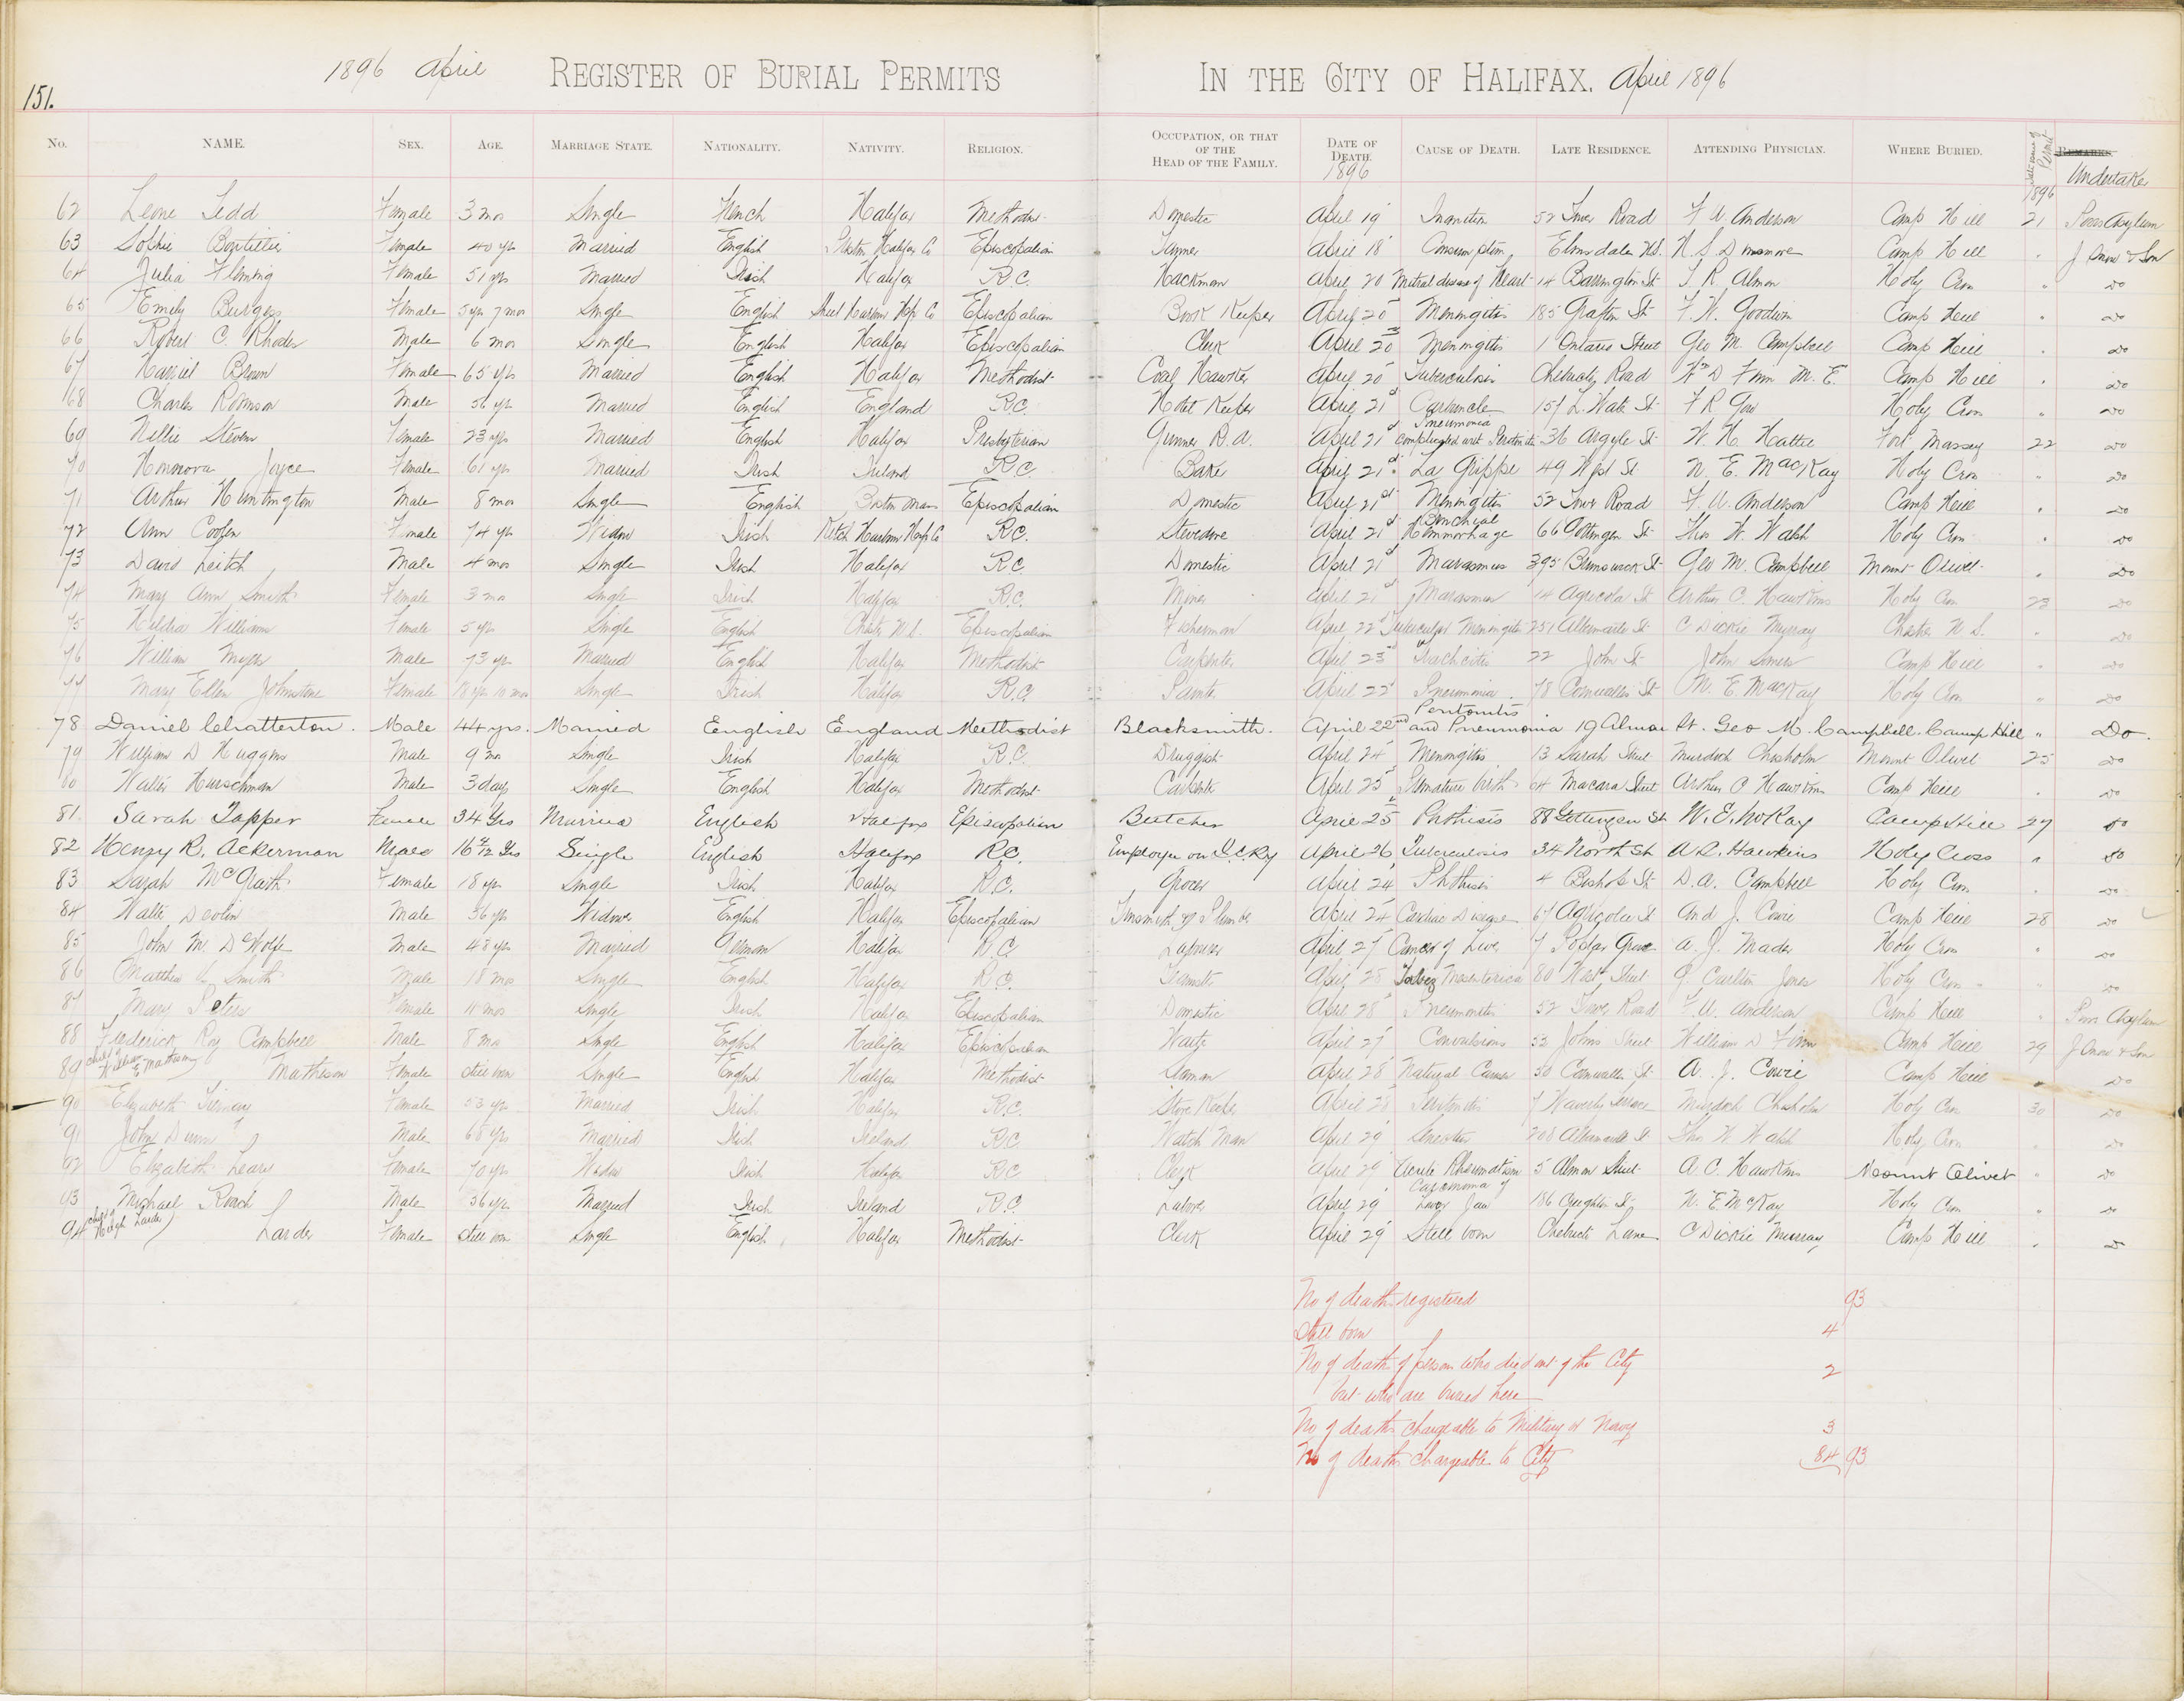 151.
1896 April REGISTER OF BURIAL PERMITS IN THE CITY OF HALIFAX. April 1896
No. NAME. SEX. AGE. MARRIAGE STATE. NATIONALITY. NATIVITY. RELIGION. OCCUPATION, OR THAT OF THE HEAD OF THE FAMILY. DATE OF DEATH. 1896 CAUSE OF DEATH. LATE RESIDENCE. ATTENDING PHYSICIAN. WHERE BURIED. Permit 1896 REMARKS Undertaker
62 Leone Ledd Female 3 mos Single French Halifax Methodist Domestic April 19 Inanition 52 Tower Road F U Anderson Camp Hill 21 Poors Asylum
63 Sophie Boutillie Female 40 yrs Married English Halifax Co Episcopalian April 18 Consumption Elmsdale N.S. Camp Hill " J Snow & Son
64 Julia Fleming Female 51 yrs Married Irish Halifax R.C. Hackman April 20 Mitral disease of Heart 14 Barrington St T R Almon Holy Cross " Do
65 Emily Burgess Female 5 yrs 7 mos Single English Sheet Harbour Hfx Co Episcopalian Book Keeper April 20 Meningitis 185 Grafton St F. W. Goodwin Camp Hill " Do
66 Robert C. Rhodes Male 6 mos Single English Halifax Episcopalian Clerk April 20 Meningitis 1 Ontario Street Geo M. Campbell Camp Hill " Do
67 Harriet Brown Female 65 yrs Married English Halifax Methodist Coal Hawker April 20 Tuberculosis Chebucto Road Wm D Finn M.E. Camp Hill " Do
68 Charles Robinson Male 56 yrs Married English England R.C. Hotel Keeper April 21st Carbuncle 151 L. Water St F R Gow Holy Cross " Do
69 Nellie Steven Female 23 yrs Married English Halifax Presbyterian Gunner R.A. April 21st Pneumonia complicated with Peritonitis 36 Argyle St W. H. Hattie Fort Massey 22 Do
70 Honnora Joyce Female 61 yrs Married Irish Ireland R.C. Baker April 21st La Grippe 49 West St N. E. MacKay Holy Cross Do
71 Arthur Huntington Male 8 mos Single English Boston Mass Episcopalian Domestic April 21st Meningitis 52 Tower Road F. U. Anderson Camp Hill " Do
72 Ann Coolen Female 74 yrs Widow Irish Ketch Harbour Hfx Co R.C. Stevedore April 21st Bronchial Hemmorhage 66 Gottingen St Thos W. Walsh Holy Cross " Do
73 David Leitch Male 4 mos Single Irish Halifax R.C. Domestic April 21st Marasmus 395 Brunswick St Geo M. Campbell Mount Olivet " Do
74 Mary Ann Smith Female 3 mos Single Irish Halifax R.C. Miner April 21st Marasmus 14 Agricola St Arthur C. Hawkins Holy Cross 23 Do
75 Hildra Williams Female 5 yrs Single English Chester N.S. Episcopalian Fisherman April 22d Tubercular Meningitis 251 Albemarle St C Dickie Murray Chester N.S. " Do
76 William Myers Male 73 yrs Married English Halifax Methodist Carpenter April 23 22 John St John Somers Camp Hill " Do
77 Mary Ellen Johnstone Female 18 yrs 10 mos Single Irish Halifax R.C. Painter April 22d Pneumonia 78 Cornwallis St N. E. MacKay Holy Cross " Do
78 Daniel Chatterton. Male 44 yrs. Married English England Methodist Blacksmith. April 22nd Peritonitis and Pneumonia 19 Almon St. Geo M. Campbell. Camp Hill " Do.
79 William D Huggins Male 9 mos Single Irish Halifax R.C. Druggist April 24 Meningitis 13 Sarah Street Murdoch Chisholm Mount Olivet 25 Do
80 Walter Hurschman Male 3 days Single English Halifax Methodist Carpenter April 25 Premature birth 64 Macara Street Arthur C Hawkins Camp Hill " Do
81. Sarah Tapper Female 34 Yrs Married English Halifax Episcopalian Butcher April 25 Phthisis 88 Gottingen St N. E. McKay Camp Hill 27 Do
82 Henry R. Ackerman Male Single English Halifax R.C. Employee on I.C.Ry April 26 Tuberculosis 34 North St A C. Hawkins Holy Cross " Do
83 Sarah McGrath Female 18 yrs Single Irish Halifax R.C. Grocer April 24 Phthisis 4 Bishop St D. A. Campbell Holy Cross " Do
84 Walter Devlin Male 36 yrs Widower English Halifax Episcopalian Tinsmith & Plumber April 24 Cardiac Disease 67 Agricola St And J. Cowie Camp Hill 28 Do
85 John M. DeWolfe Male 48 yrs Married German Halifax R.C. Labourer April 27 Cancer of Liver 7 Poplar Grove A. J. Mader Holy Cross " Do
86 Matthew L Smith Male 18 mos Single English Halifax R.C. Teamster April 28 Tabes Mesenterica 80 West Street G. Carlton Jones Holy Cross " Do
87 Mary Peters Female 11 mos Single Irish Halifax Episcopalian Domestic April 28 Pneumonitis 52 Tower Road F. U. Anderson Camp Hill " Poors Asylum
88 Frederick Roy Campbell Male 8 mos Single English Halifax Episcopalian Waiter April 27 Convulsions 33 Johns Street William D Finn Camp Hill 29 J Snow & Son
89 child of William E Matheson Matheson Female still born Single English Halifax Methodist Seaman April 28 Natural Causes 50 Cornwallis St A. J. Cowie Camp Hill " Do
90 Elizabeth Tierney Female 53 yrs Married Irish Halifax R.C. Store Keeper April 28 Peritonitis 7 Waverly Terrace Murdoch Chisholm Holy Cross 30 Do
91 John Dunn Male 68 yrs Married Irish Ireland R.C. Watch Man April 29 208 Albemarle St Thos W Walsh Holy Cross " Do
92 Elizabeth Leary Female 70 yrs Widow Irish Halifax R.C. Clerk April 29 Acute Rheumatism 5 Almon Street A. C. Hawkins Mount Olivet " Do
93 Michael Roach Male 36 yrs Married Irish Ireland R.C. Laborer April 29 Carcinoma of Lower Jaw 186 Creighton St N. E. McKay Holy Cross " Do
94 child of Hugh Larder Larder Female still born Single English Halifax Methodist Clerk April 29 Still born Chebucto Lane C Dickie Murray Camp Hill " Do
No of deaths registered 93
Still born 4
No of deaths of person who died out of the City 2
but who are buried here
No of deaths chargeable to Military or Navy 3
No of deaths chargeable to City 84 93